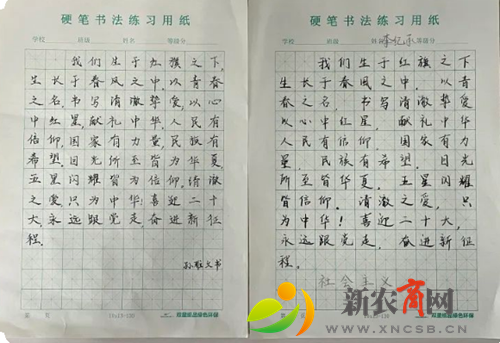 硬笔书法练习用纸
学校 班级 姓名 等级分
我们生于红旗之下,
生长于春风之中,以青春
之名,书写清澈挚爱,以心
中红星,献礼中华,人民有
信仰,国家有力量,民族有
希望,目光所至皆为华夏,
五星闪耀皆为信仰,清澈
之爱只为中华,喜迎二十
大永远跟党走,奋进新征
程。
书
硬笔书法练习用纸
学校 班级 等级分
我们生于红旗之下
生长于春风之中,以青
春之名,书写清澈挚爱
以心中红星,献礼中华,
人民有信仰,国家有力
量,民族有希望,目光
所至皆华夏,五星闪耀
皆信仰。清澈之爱,只
为中华!喜迎二十大,
永远跟党走,奋进新征
程。
社会主义
新农商网
WWW.XNCSB.CN